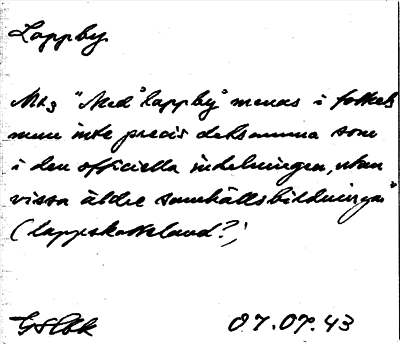 Lappby
"Med "lappby" menas i folkets
mun inte precis detsamma som
i den officiella indelningen, utan
vissa äldre samhällsbildningar"
(lappskatteland?)
07.07.43